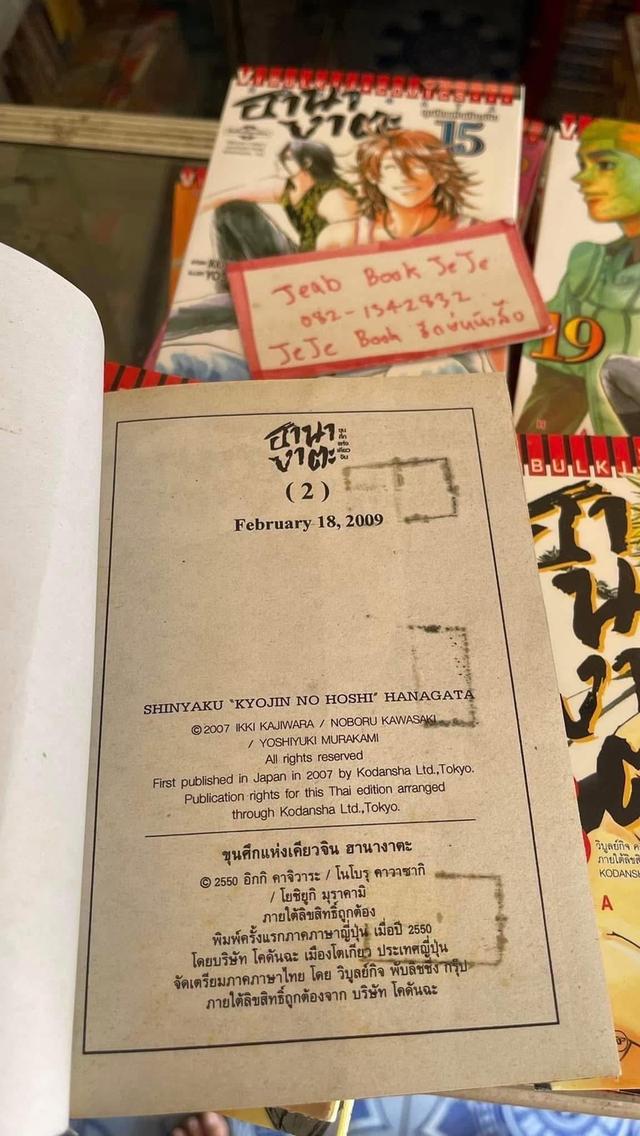 ฮานา
งาตะ
15
Jeab Book JeJe
082-1342832
JeJe Book
19
ฮานา
งาตะ
ขุน
ศึก
แห่ง
เคียว
จิน
( 2 )
February 18, 2009
SHINYAKU "KYOJIN NO HOSHI" HANAGATA
©2007 IKKI KAJIWARA / NOBORU KAWASAKI
/ YOSHIYUKI MURAKAMI
All rights reserved
First published in Japan in 2007 by Kodansha Ltd.,Tokyo.
Publication rights for this Thai edition arranged
through Kodansha Ltd.,Tokyo.
ขุนศึกแห่งเคียวจิน ฮานางาตะ
© 2550 อิกกิ คาจิวาระ / โนโบรุ คาวาซากิ
/ โยชิยูกิ มุราคามิ
ภายใต้ลิขสิทธิ์ถูกต้อง
พิมพ์ครั้งแรกภาคภาษาญี่ปุ่น เมื่อปี 2550
โดยบริษัท โคดันฉะ เมืองโตเกียว ประเทศญี่ปุ่น
จัดเตรียมภาคภาษาไทย โดย วิบูลย์กิจ พับลิชชิ่ง กรุ๊ป
ภายใต้ลิขสิทธิ์ถูกต้องจาก บริษัท โคดันฉะ
BULK
ฮา
นา
งา
วิบูลย์กิจ
ภายใต้ลิขสิ
KODANSH
A